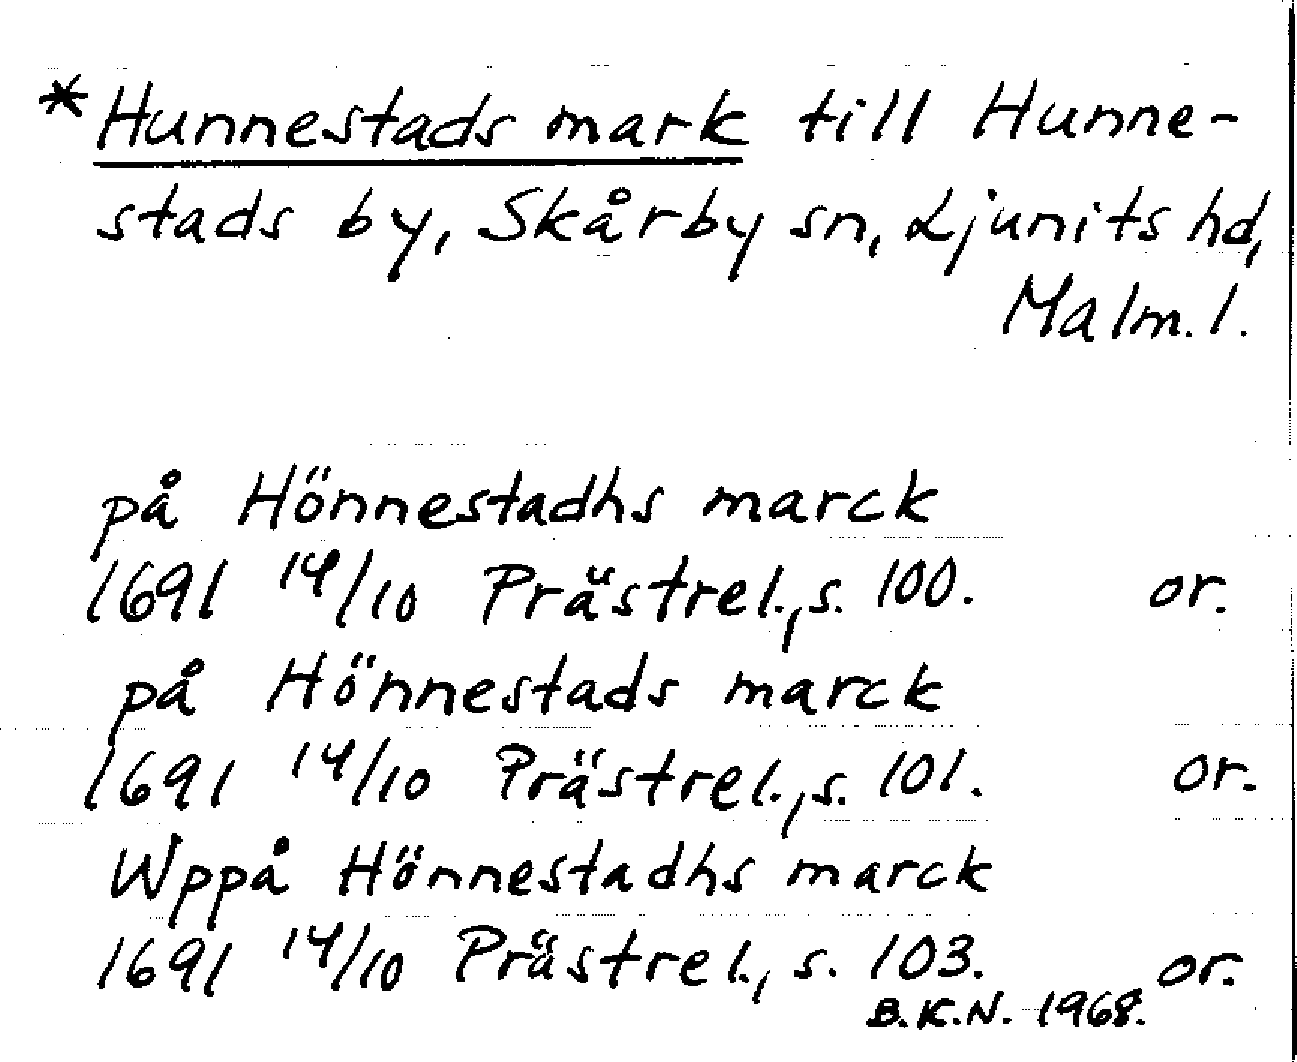 *Hunnestads mark till Hunne-
stads by, Skårby sn, Ljunits hd,
Malm. l.
på Hönnestadhs marck
1691 14/10 Prästrel., s. 100. or.
på Hönnestads marck
1691 14/10 Prästrel., s. 101. or.
Wppå Hönnestadhs marck
1691 14/10 Prästrel., s. 103. or.
B.K.N. 1968.